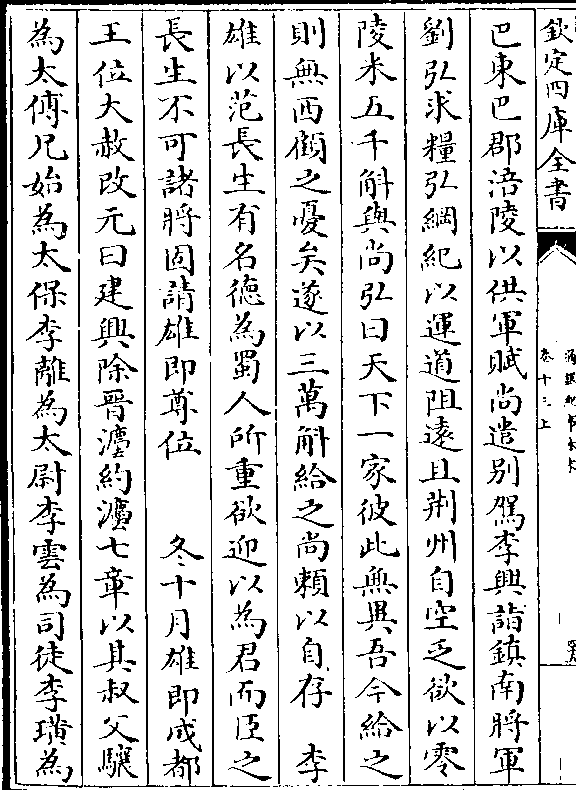 欽定四庫全書
通鑑紀事本末
卷十三上
巴東巴郡涪陵以供軍賦尚遣别駕李興詣鎮南將軍
劉弘求糧弘綱紀以運道阻遠且荆州自空乏欲以零
陵米五千斛與尚弘曰天下一家彼此無異吾今給之
則無西顧之憂矣遂以三萬斛給之尚賴以自存　李
雄以范長生有名德為蜀人所重欲迎以為君而臣之
長生不可諸將固請雄即尊位　冬十月雄即成都
王位大赦改元曰建興除晉灋約灋七章以其叔父驤
為太傅兄始為太保李離為太尉李雲為司徒李璜為